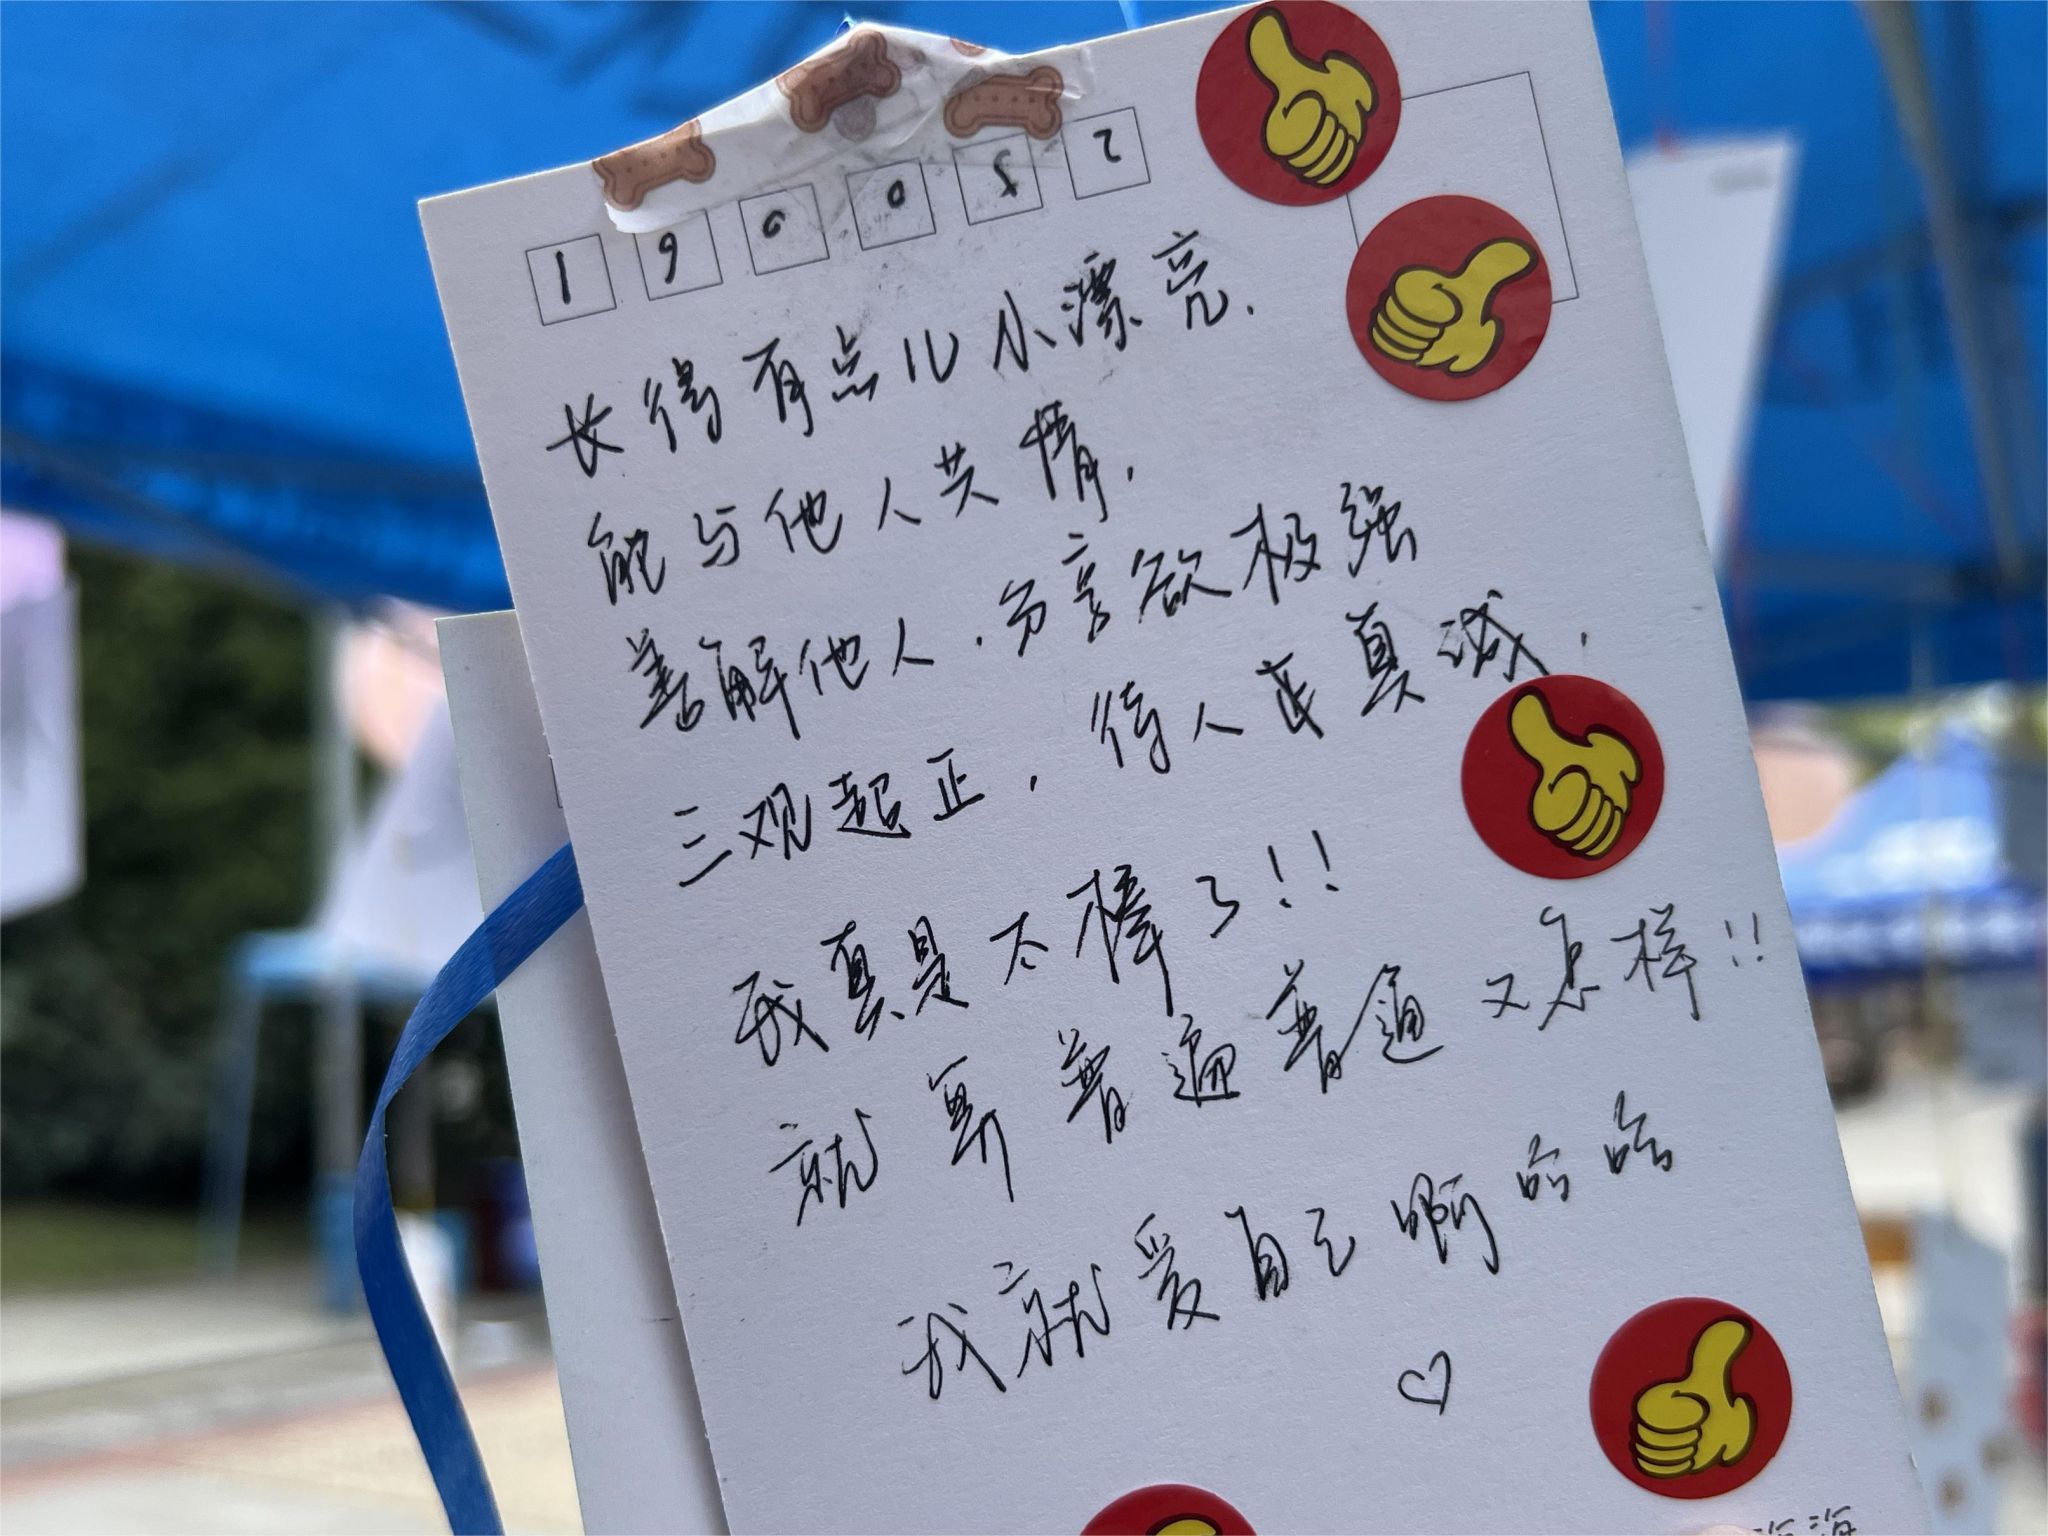 长得有点儿小漂亮.
能与他人共情,
善解他人.分享欲极强
三观超正,待人真诚,
我真是太棒了!!
就算普遍普通又怎样!!
我就爱自己啊哈哈